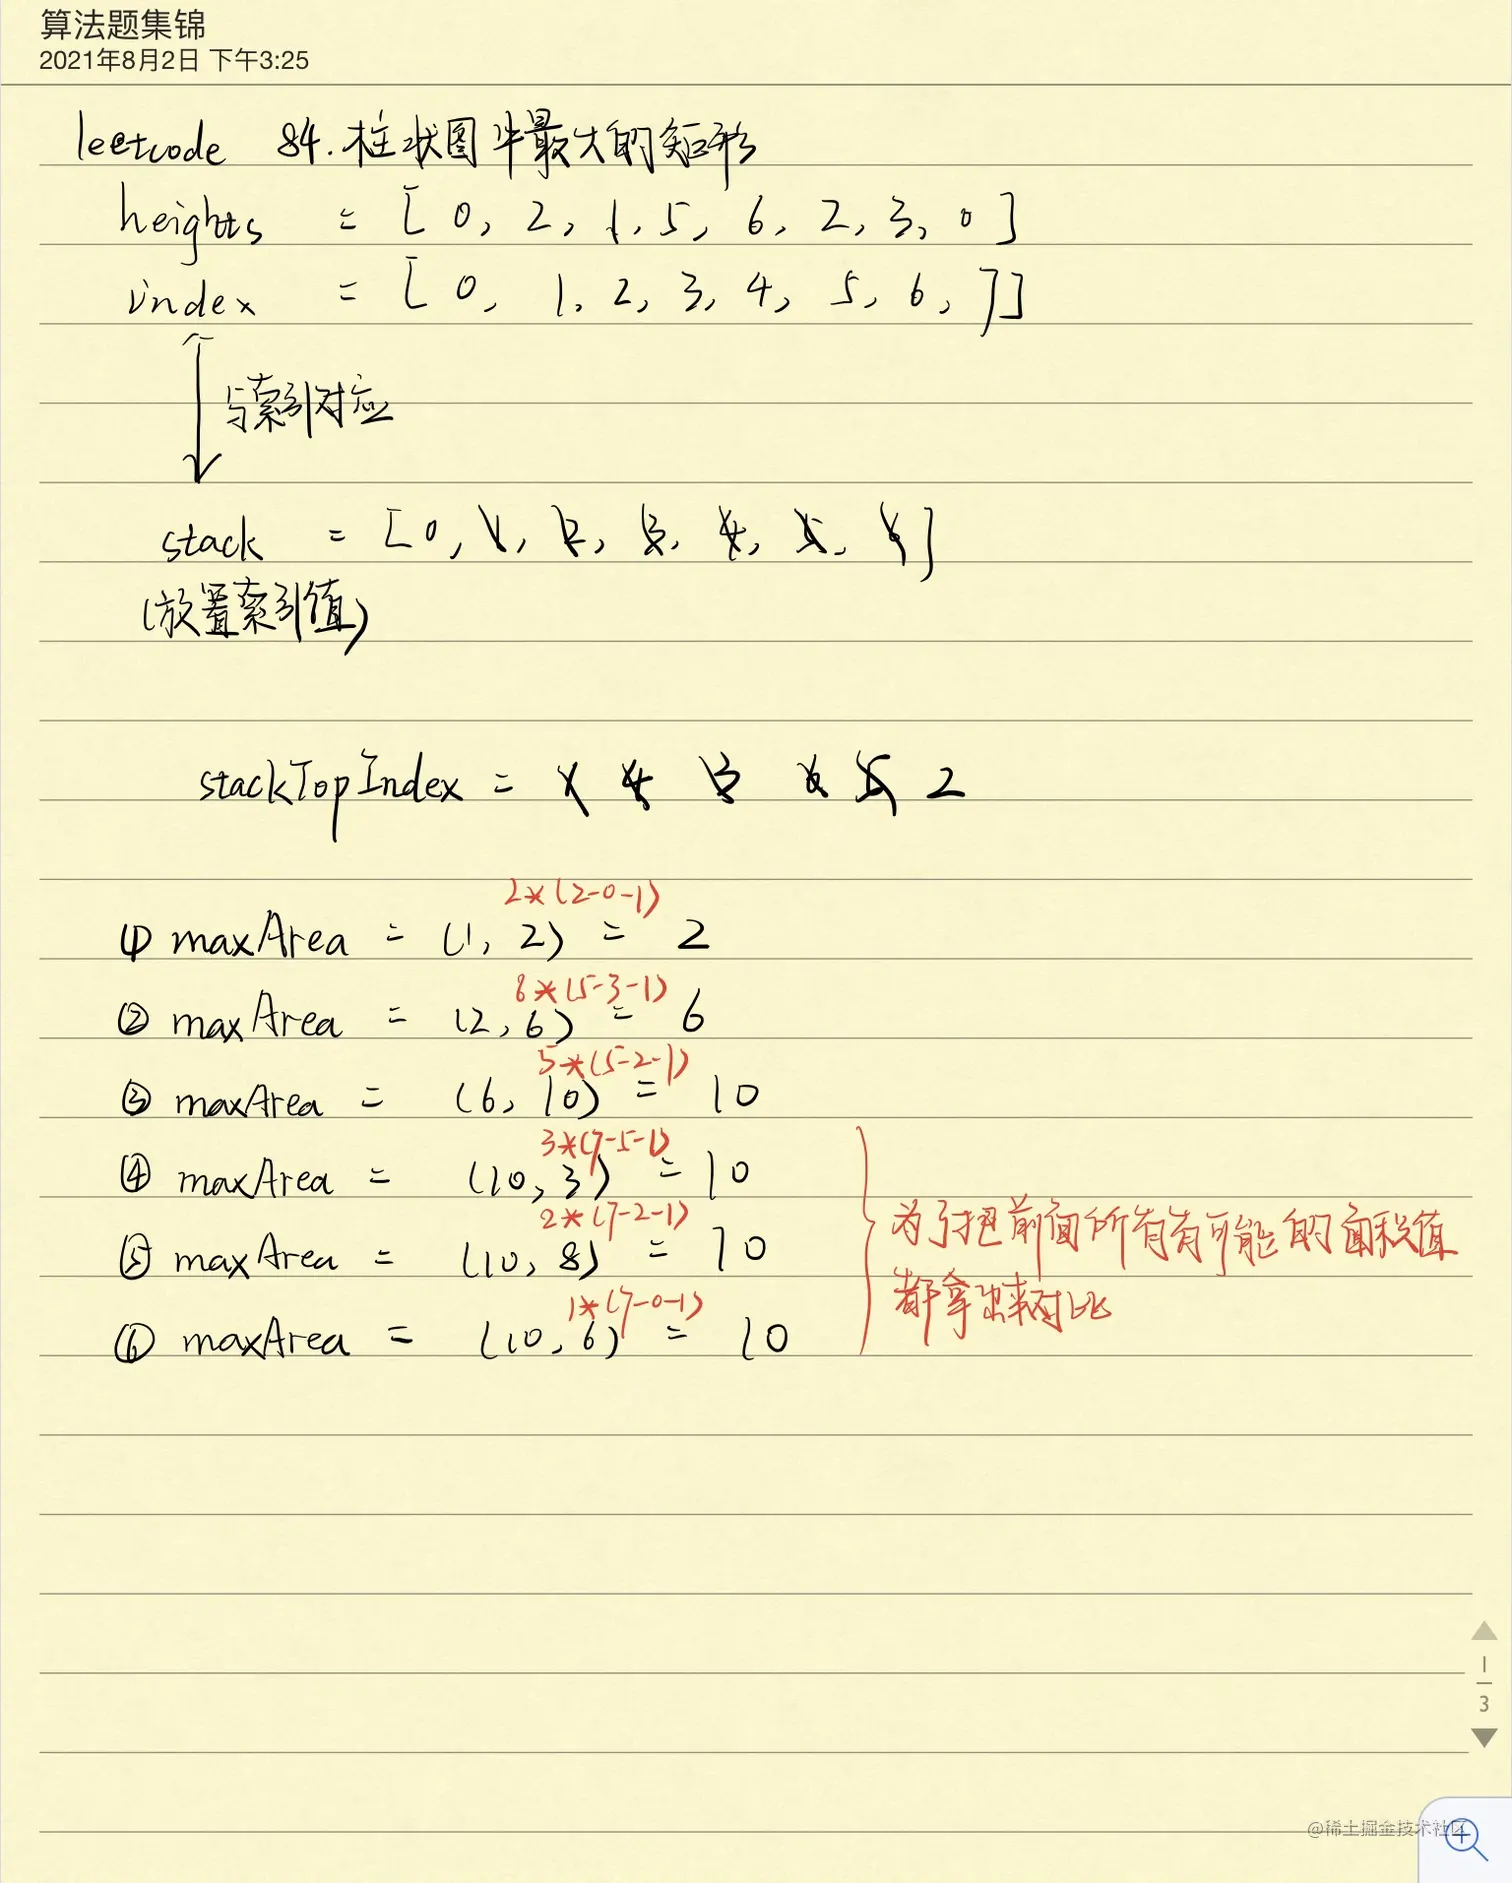 算法题集锦
2021年8月2日 下午3:25
leetcode 84.柱状图中最大的矩形
heights = [0, 2, 1, 5, 6, 2, 3, 0]
index = [0, 1, 2, 3, 4, 5, 6, 7]
与索引对应
stack = [0, 1, 2, 3, 4, 5, 6]
(放置索引值)
stackTopIndex = 1 4 3 6 5 2
2*(2-0-1)
① maxArea = (1, 2) = 2
6*(5-3-1)
② maxArea = (2, 6) = 6
5*(5-2-1)
③ maxArea = (6, 10) = 10
3*(7-5-1)
④ maxArea = (10, 3) = 10
2*(7-2-1)
⑤ maxArea = (10, 8) = 10
1*(7-0-1)
⑥ maxArea = (10, 6) = 10
为了把前面所有有可能的面积值
都拿出来对比
1
3
@稀土掘金技术社区